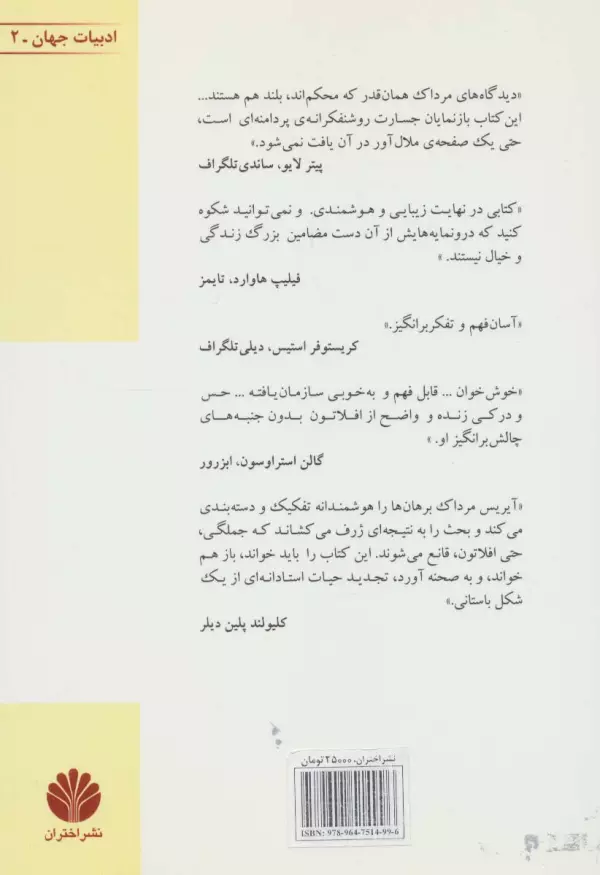 ادبیات جهان ـ ۲
«دیدگاه‌های مرداک همان‌قدر که محکم‌اند، بلند هم هستند...
این کتاب بازنمایان جسارت روشنفکرانه‌ی پردامنه‌ای است،
حتی یک صفحه‌ی ملال‌آور در آن یافت نمی‌شود.»
پیتر لایو، ساندی تلگراف
«کتابی در نهایت زیبایی و هوشمندی. و نمی‌توانید شکوه
کنید که درونمایه‌هایش از آن دست مضامین بزرگ زندگی
و خیال نیستند.»
فیلیپ هاوارد، تایمز
«آسان‌فهم و تفکربرانگیز.»
کریستوفر استیس، دیلی تلگراف
«خوش‌خوان ... قابل فهم و به‌خوبی سازمان‌یافته ... حس
و درکی زنده و واضح از افلاتون بدون جنبه‌های
چالش‌برانگیز او.»
گالن استراوسون، ابزرور
«آیریس مرداک برهان‌ها را هوشمندانه تفکیک و دسته‌بندی
می‌کند و بحث را به نتیجه‌ای ژرف می‌کشاند که جملگی،
حتی افلاتون، قانع می‌شوند. این کتاب را باید خواند، باز هم
خواند، و به صحنه آورد، تجدید حیات استادانه‌ای از یک
شکل باستانی.»
کلیولند پلین دیلر
نشر اختران، ۲۵۰۰۰ تومان
ISBN: 978-964-7514-99-6
نشر اختران